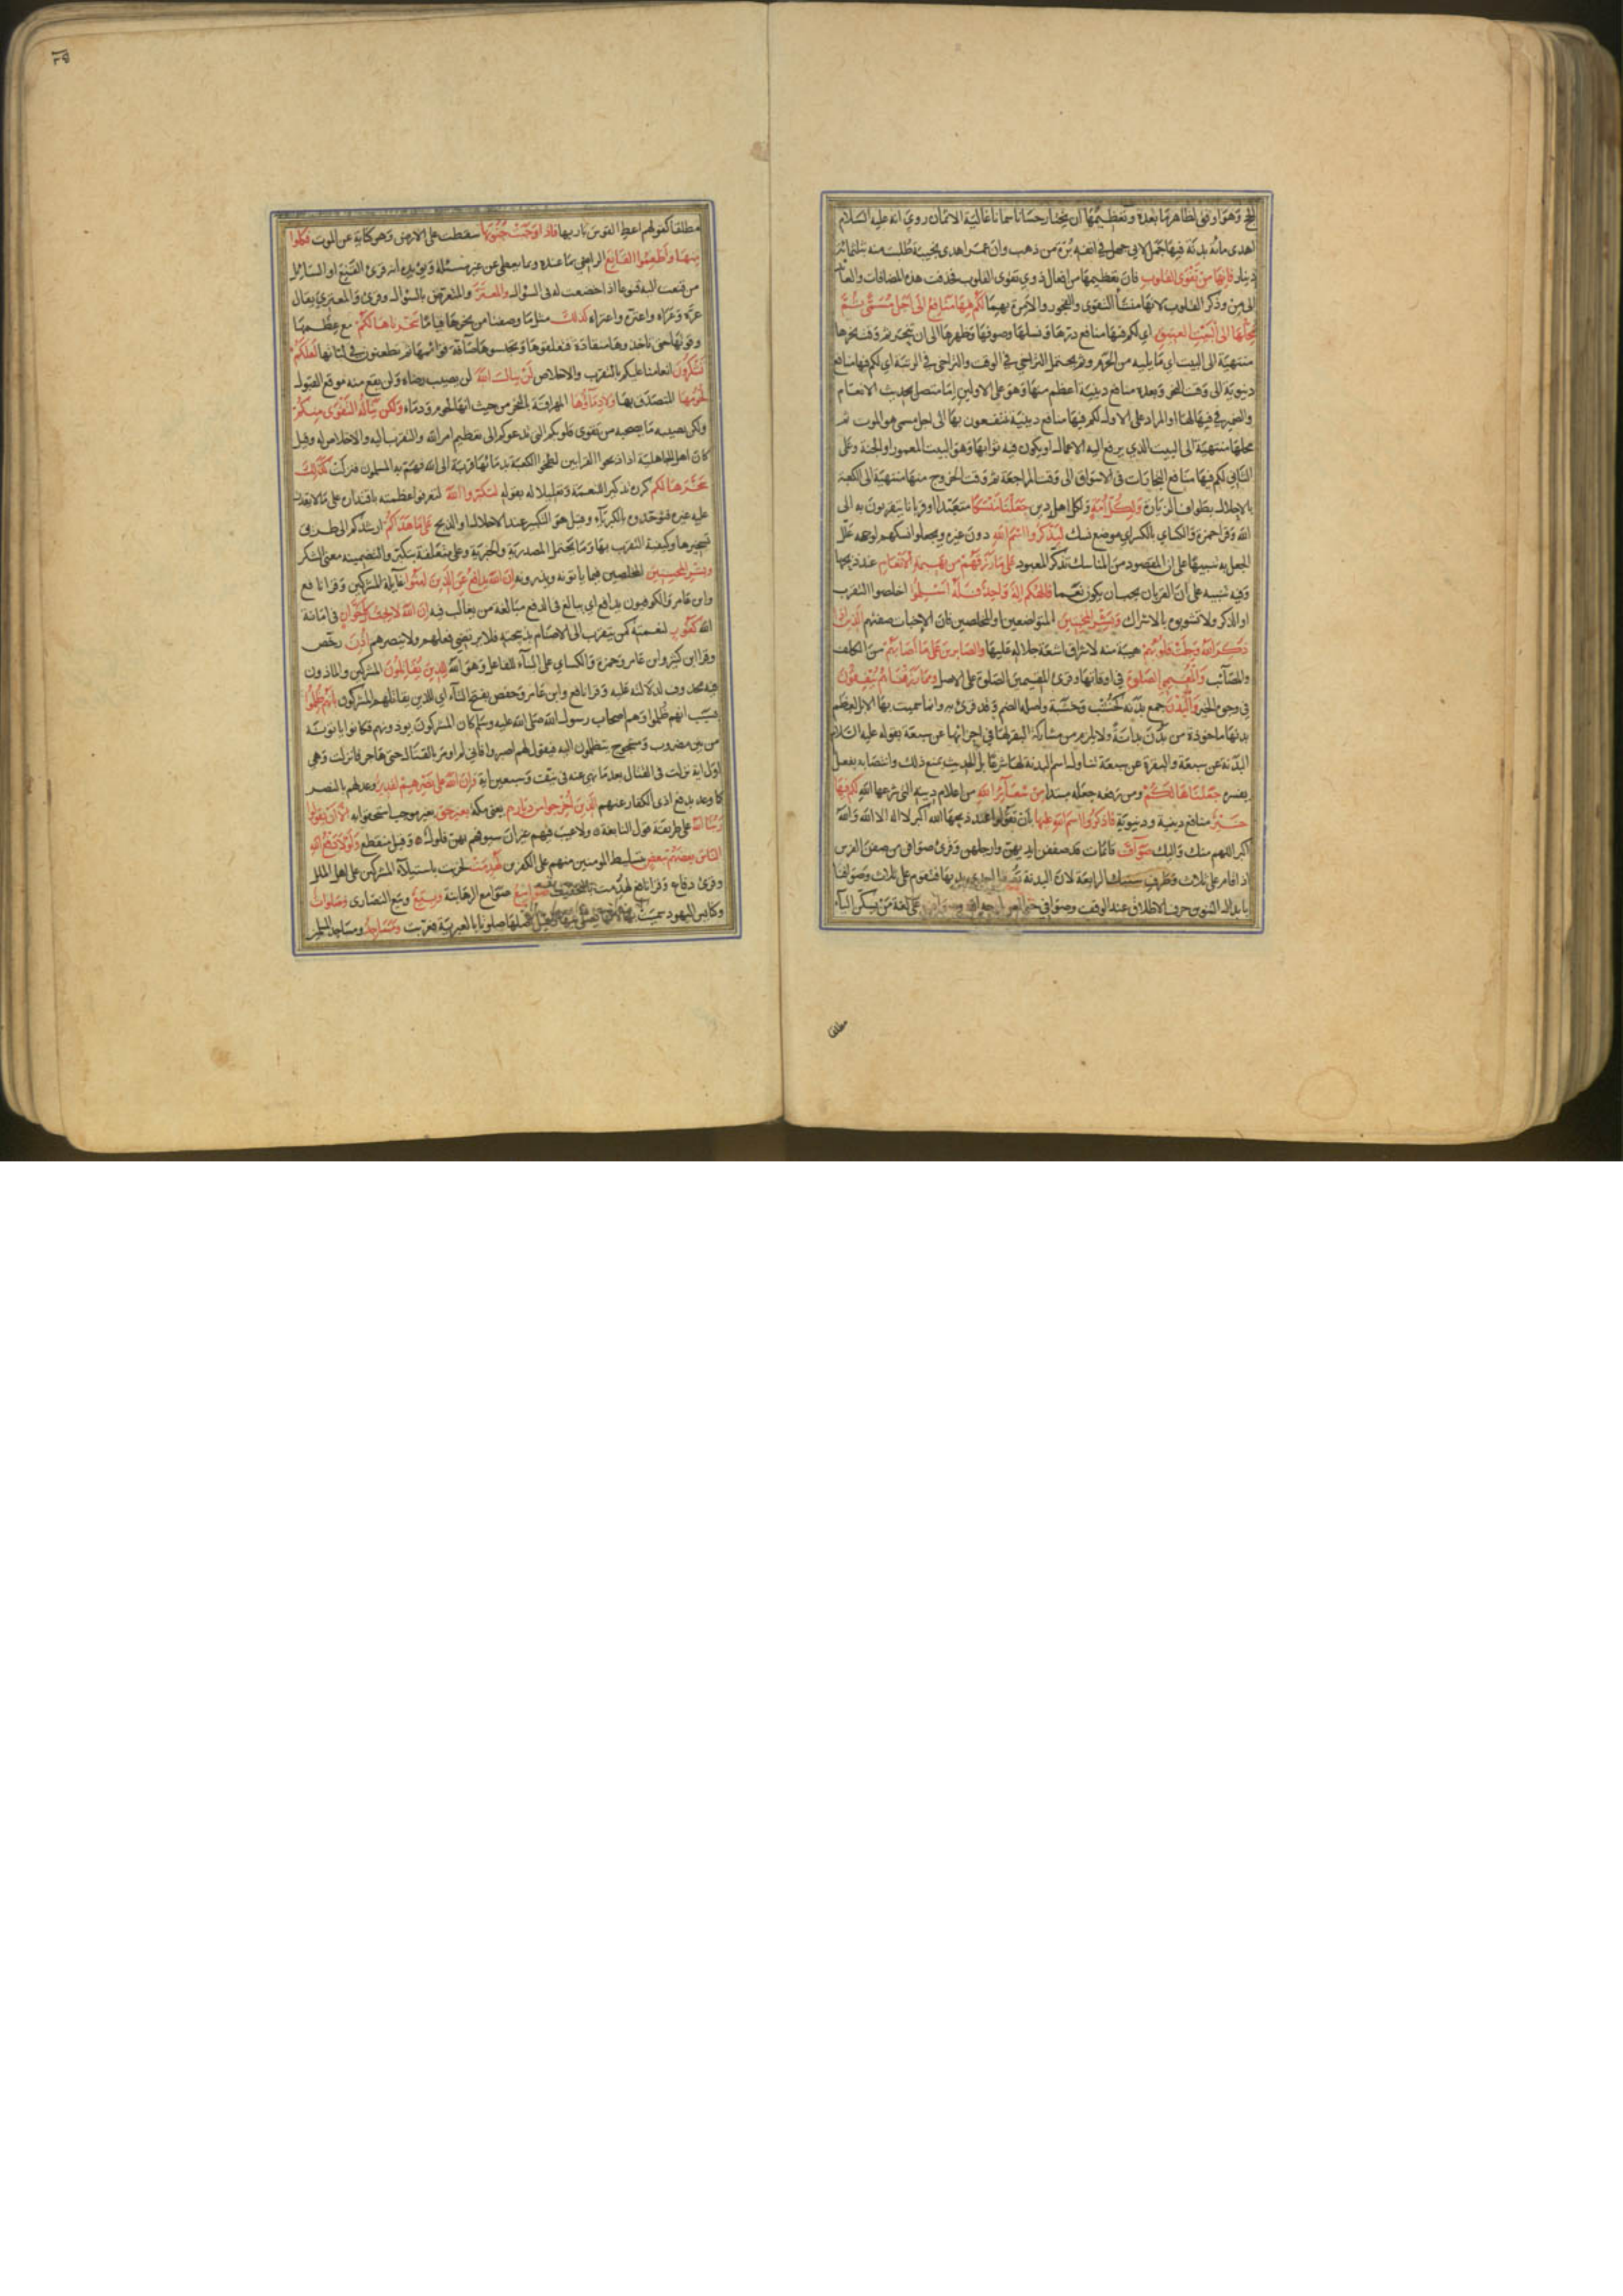 الحج وهو اوفق لظاهر ما بعده وتعظيمها ان يختار حسانا سمانا غالية الاثمان روي انه عليه السلام
اهدى مائة بدنة فيها جمل لابي جهل في انفه برة من ذهب وان عمر اهدى نجيبة طلبت منه بثلثمائة
دينار فانها من تقوى القلوب فان تعظيمها من افعال ذوي تقوى القلوب فحذفت هذه المضافات والعائد
الى من وذكر القلوب لانها منشأ التقوى والفجور والآمرة بهما لكم فيها منافع الى اجل مسمى ثم
محلها الى البيت العتيق اي لكم فيها منافع درها ونسلها وصوفها وظهرها الى ان تنحر ثم وقت نحرها
منتهية الى البيت اي ما يليه من الحرم وثم يحتمل التراخي في الوقت والتراخي في الرتبة اي لكم فيها منافع
دنيوية الى وقت النحر وبعده منافع دينية اعظم منها وهو على الاولين اما متصل بحديث الانعام
والضمير في فيها لها او المراد على الاول لكم فيها منافع دينية تنتفعون بها الى اجل مسمى هو الموت ثم
محلها منتهية الى البيت الذي يرفع اليه الاعمال او يكون فيه ثوابها وهو البيت المعمور او الجنة وعلى
الثاني لكم فيها منافع التجارات في الاسواق الى وقت المراجعة ثم وقت الخروج منها منتهية الى الكعبة
بالاحلال بطواف الزيارة ولكل امة ولكل اهل دين جعلنا منسكا متعبدا او قربانا يتقربون به الى
الله وقرأ حمزة والكسائي بالكسر اي موضع نسك ليذكروا اسم الله دون غيره ويجعلوا نسكهم لوجهه علل
الجعل به تنبيها على ان المقصود من المناسك تذكر المعبود على ما رزقهم من بهيمة الانعام عند ذبحها
وفيه تنبيه على ان القربان يجب ان يكون نعما فالهكم اله واحد فله اسلموا اخلصوا التقرب
او الذكر ولا تشوبوه بالاشراك وبشر المخبتين المتواضعين او المخلصين فان الاخبات صفتهم الذين اذا
ذكر الله وجلت قلوبهم هيبة منه لاشراق اشعة جلاله عليها والصابرين على ما اصابهم من الكلف
والمصائب والمقيمي الصلوة في اوقاتها وقرئ المقيمين الصلوة على الاصل ومما رزقناهم ينفقون
في وجوه الخير والبدن جمع بدنة كخشب وخشبة واصله الضم وقد قرئ به وانما سميت بها الابل لعظم
بدنها ماخوذة من بدن بدانة ولا يلزم من مشاركة البقرة لها في اجزائها عن سبعة بقوله عليه السلام
البدنة عن سبعة والبقرة عن سبعة تناول اسم البدنة لها شرعا بل الحديث يمنع ذلك وانتصابه بفعل
يفسره جعلناها لكم ومن رفعه جعله مبتدا من شعائر الله من اعلام دينه التي شرعها الله لكم فيها
خير منافع دينية ودنيوية فاذكروا اسم الله عليها بان تقولوا عند ذبحها الله اكبر لا اله الا الله والله
اكبر اللهم منك واليك صواف قائمات قد صففن ايديهن وارجلهن وقرئ صوافن من صفن الفرس
اذا قام على ثلاث وطرف سنبك الرابعة لان البدنة تعقل احدى يديها فتقوم على ثلاث وصوافنا
بابدال التنوين حرف الاطلاق عند الوقف وصوافي على لغة من يسكن الياء
مطلقا
٣٥
مطلقا كقولهم اعط القوس باريها فاذا وجبت جنوبها سقطت على الارض وهو كناية عن الموت فكلوا
منها واطعموا القانع الراضي بما عنده وبما يعطى من غير مسئلة ويؤيده انه قرئ القنع او السائل
من قنعت اليه قنوعا اذا خضعت له في السؤال والمعتر والمتعرض بالسؤال وقرئ والمعتري يقال
عره وعراه واعتره واعتراه كذلك مثل ما وصفنا من نحرها قياما سخرناها لكم مع عظمها
وقوتها حتى تاخذوها منقادة فتعقلوها وتحبسوها صافة قوائمها ثم تطعنون في لباتها لعلكم
تشكرون انعامنا عليكم بالتقرب والاخلاص لن ينال الله لن يصيب رضاه ولن يقع منه موقع القبول
لحومها المتصدق بها ولا دماؤها المهراقة بالنحر من حيث انها لحوم ودماء ولكن يناله التقوى منكم
ولكن يصيبه ما يصحبه من تقوى قلوبكم التي تدعوكم الى تعظيم امر الله والتقرب اليه والاخلاص له وقيل
كان اهل الجاهلية اذا ذبحوا القرابين لطخوا الكعبة بدمائها قربة الى الله فهم به المسلمون فنزلت كذلك
سخرها لكم كرره تذكيرا للنعمة وتعليلا له بقوله لتكبروا الله لتعرفوا عظمته باقتداره على ما لا يقدر
عليه غيره فتوحدوه بالكبرياء وقيل هو التكبير عند الاحلال او الذبح على ما هداكم ارشدكم الى طريق
تسخيرها وكيفية التقرب بها وما يحتمل المصدرية والخبرية وعلى متعلقة بتكبروا لتضمينه معنى الشكر
وبشر المحسنين المخلصين فيما ياتونه ويذرونه ان الله يدافع عن الذين امنوا غائلة المشركين وقرأ نافع
وابن عامر والكوفيون يدافع اي يبالغ في الدفع مبالغة من يغالب فيه ان الله لا يحب كل خوان في امانة
الله كفور لنعمته كمن يتقرب الى الاصنام بذبيحته فلا يرتضي فعلهم ولا ينصرهم اذن رخص
وقرأ ابن كثير وابن عامر وحمزة والكسائي على البناء للفاعل وهو الله للذين يقاتلون المشركين والماذون
فيه محذوف لدلالته عليه وقرأ نافع وابن عامر وحفص بفتح التاء اي للذين يقاتلهم المشركون بانهم ظلموا
بسبب انهم ظلموا وهم اصحاب رسول الله صلى الله عليه وسلم كان المشركون يؤذونهم وكانوا ياتونه
من بين مضروب ومشجوج يتظلمون اليه فيقول لهم اصبروا فاني لم اومر بالقتال حتى هاجر فانزلت وهي
اول اية نزلت في القتال بعد ما نهي عنه في نيف وسبعين اية وان الله على نصرهم لقدير وعد لهم بالنصر
كما وعد بدفع اذى الكفار عنهم الذين اخرجوا من ديارهم يعني مكة بغير حق بغير موجب استحقوا به الا ان يقولوا
ربنا الله على طريقة قول النابغة ولا عيب فيهم غير ان سيوفهم بهن فلول وقيل منقطع ولولا دفع الله
الناس بعضهم ببعض بتسليط المؤمنين منهم على الكافرين لهدمت لخربت باستيلاء المشركين على اهل الملل
وقرئ دفاع وقرأ نافع لهدمت بالتخفيف صوامع صوامع الرهبانية وبيع وبيع النصارى وصلوات
وكنائس اليهود سميت بها لانها يصلى فيها وقيل اصلها صلوثا بالعبرية فعربت ومساجد ومساجد المسلمين